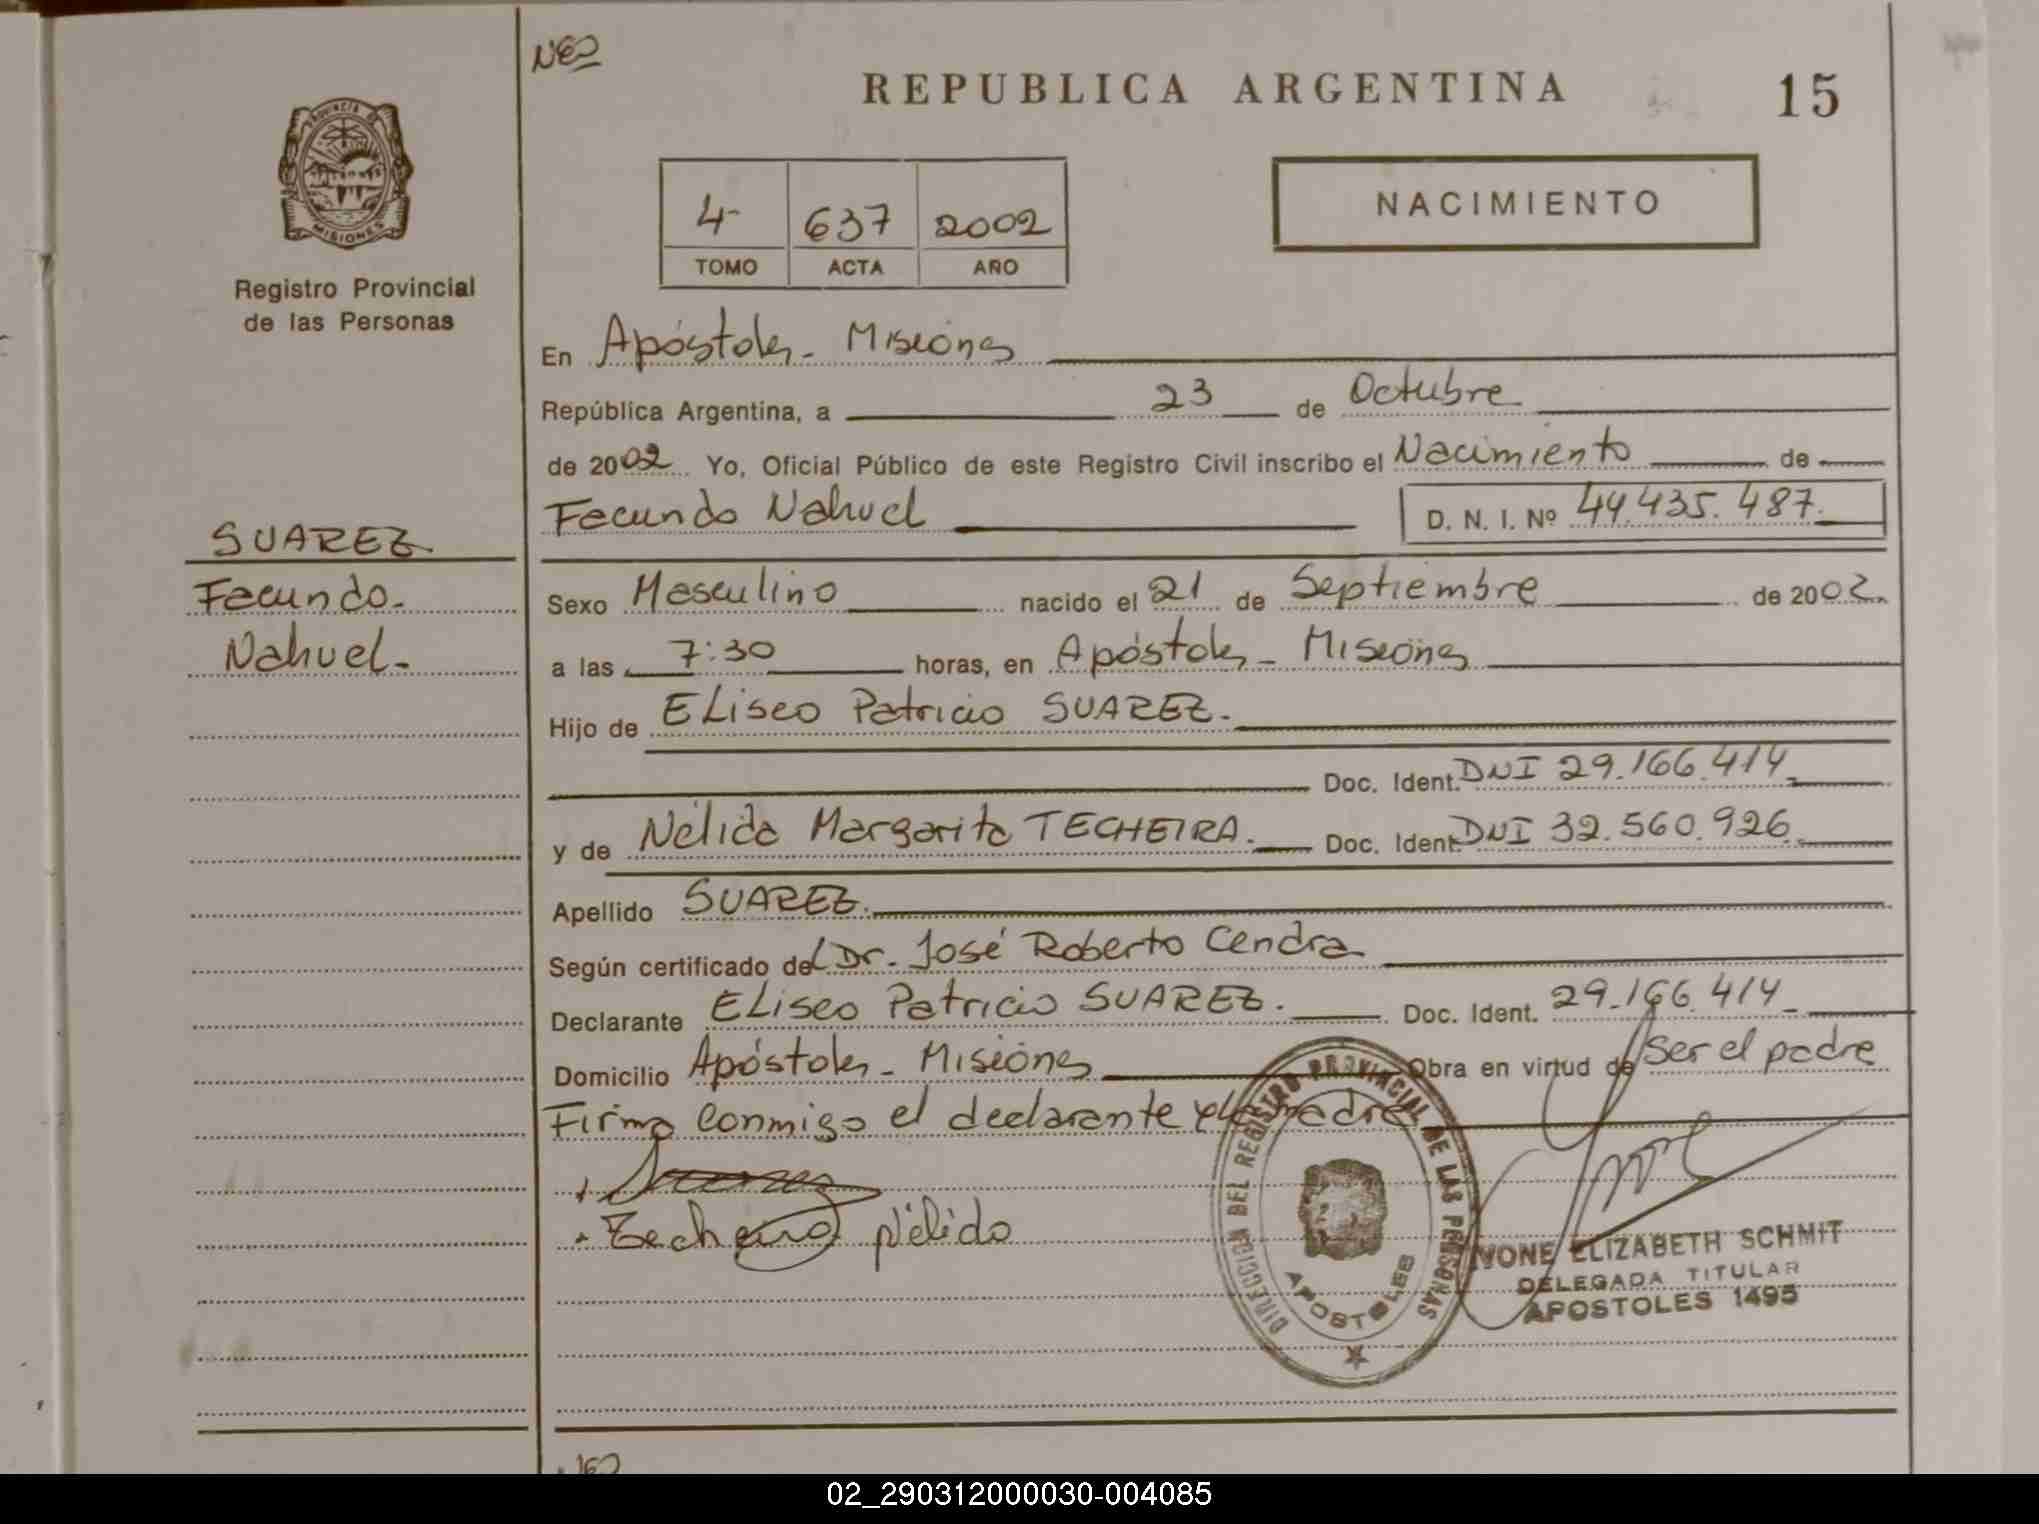 NEO
REPUBLICA ARGENTINA 15
PROVINCIA DE
MISIONES
Registro Provincial
de las Personas
4 637 2002
TOMO ACTA AÑO
NACIMIENTO
En Apóstoles - Misiones
República Argentina, a 23 de Octubre
de 2002 Yo, Oficial Público de este Registro Civil inscribo el Nacimiento de
Facundo Nahuel D. N. I. Nº 44.435.487.
SUAREZ
Facundo -
Nahuel -
Sexo Masculino nacido el 21 de Septiembre de 2002.
a las 7:30 horas, en Apóstoles - Misiones
Hijo de ELiseo Patricio SUAREZ.
Doc. Ident. DNI 29.166.414
y de Nélida Margarita TECHEIRA. Doc. Ident. DNI 32.560.926.
Apellido SUAREZ.
Según certificado del Dr. José Roberto Cendra
Declarante ELiseo Patricio SUAREZ. Doc. Ident. 29.166.414
Domicilio Apóstoles - Misiones Obra en virtud de Ser el padre
Firma conmigo el declarante y la madre
Nélida
DIRECCION DEL REGISTRO PROVINCIAL DE LAS PERSONAS
APOSTOLES
IVONE ELIZABETH SCHMIT
DELEGADA TITULAR
APOSTOLES 1495
02_290312000030-004085